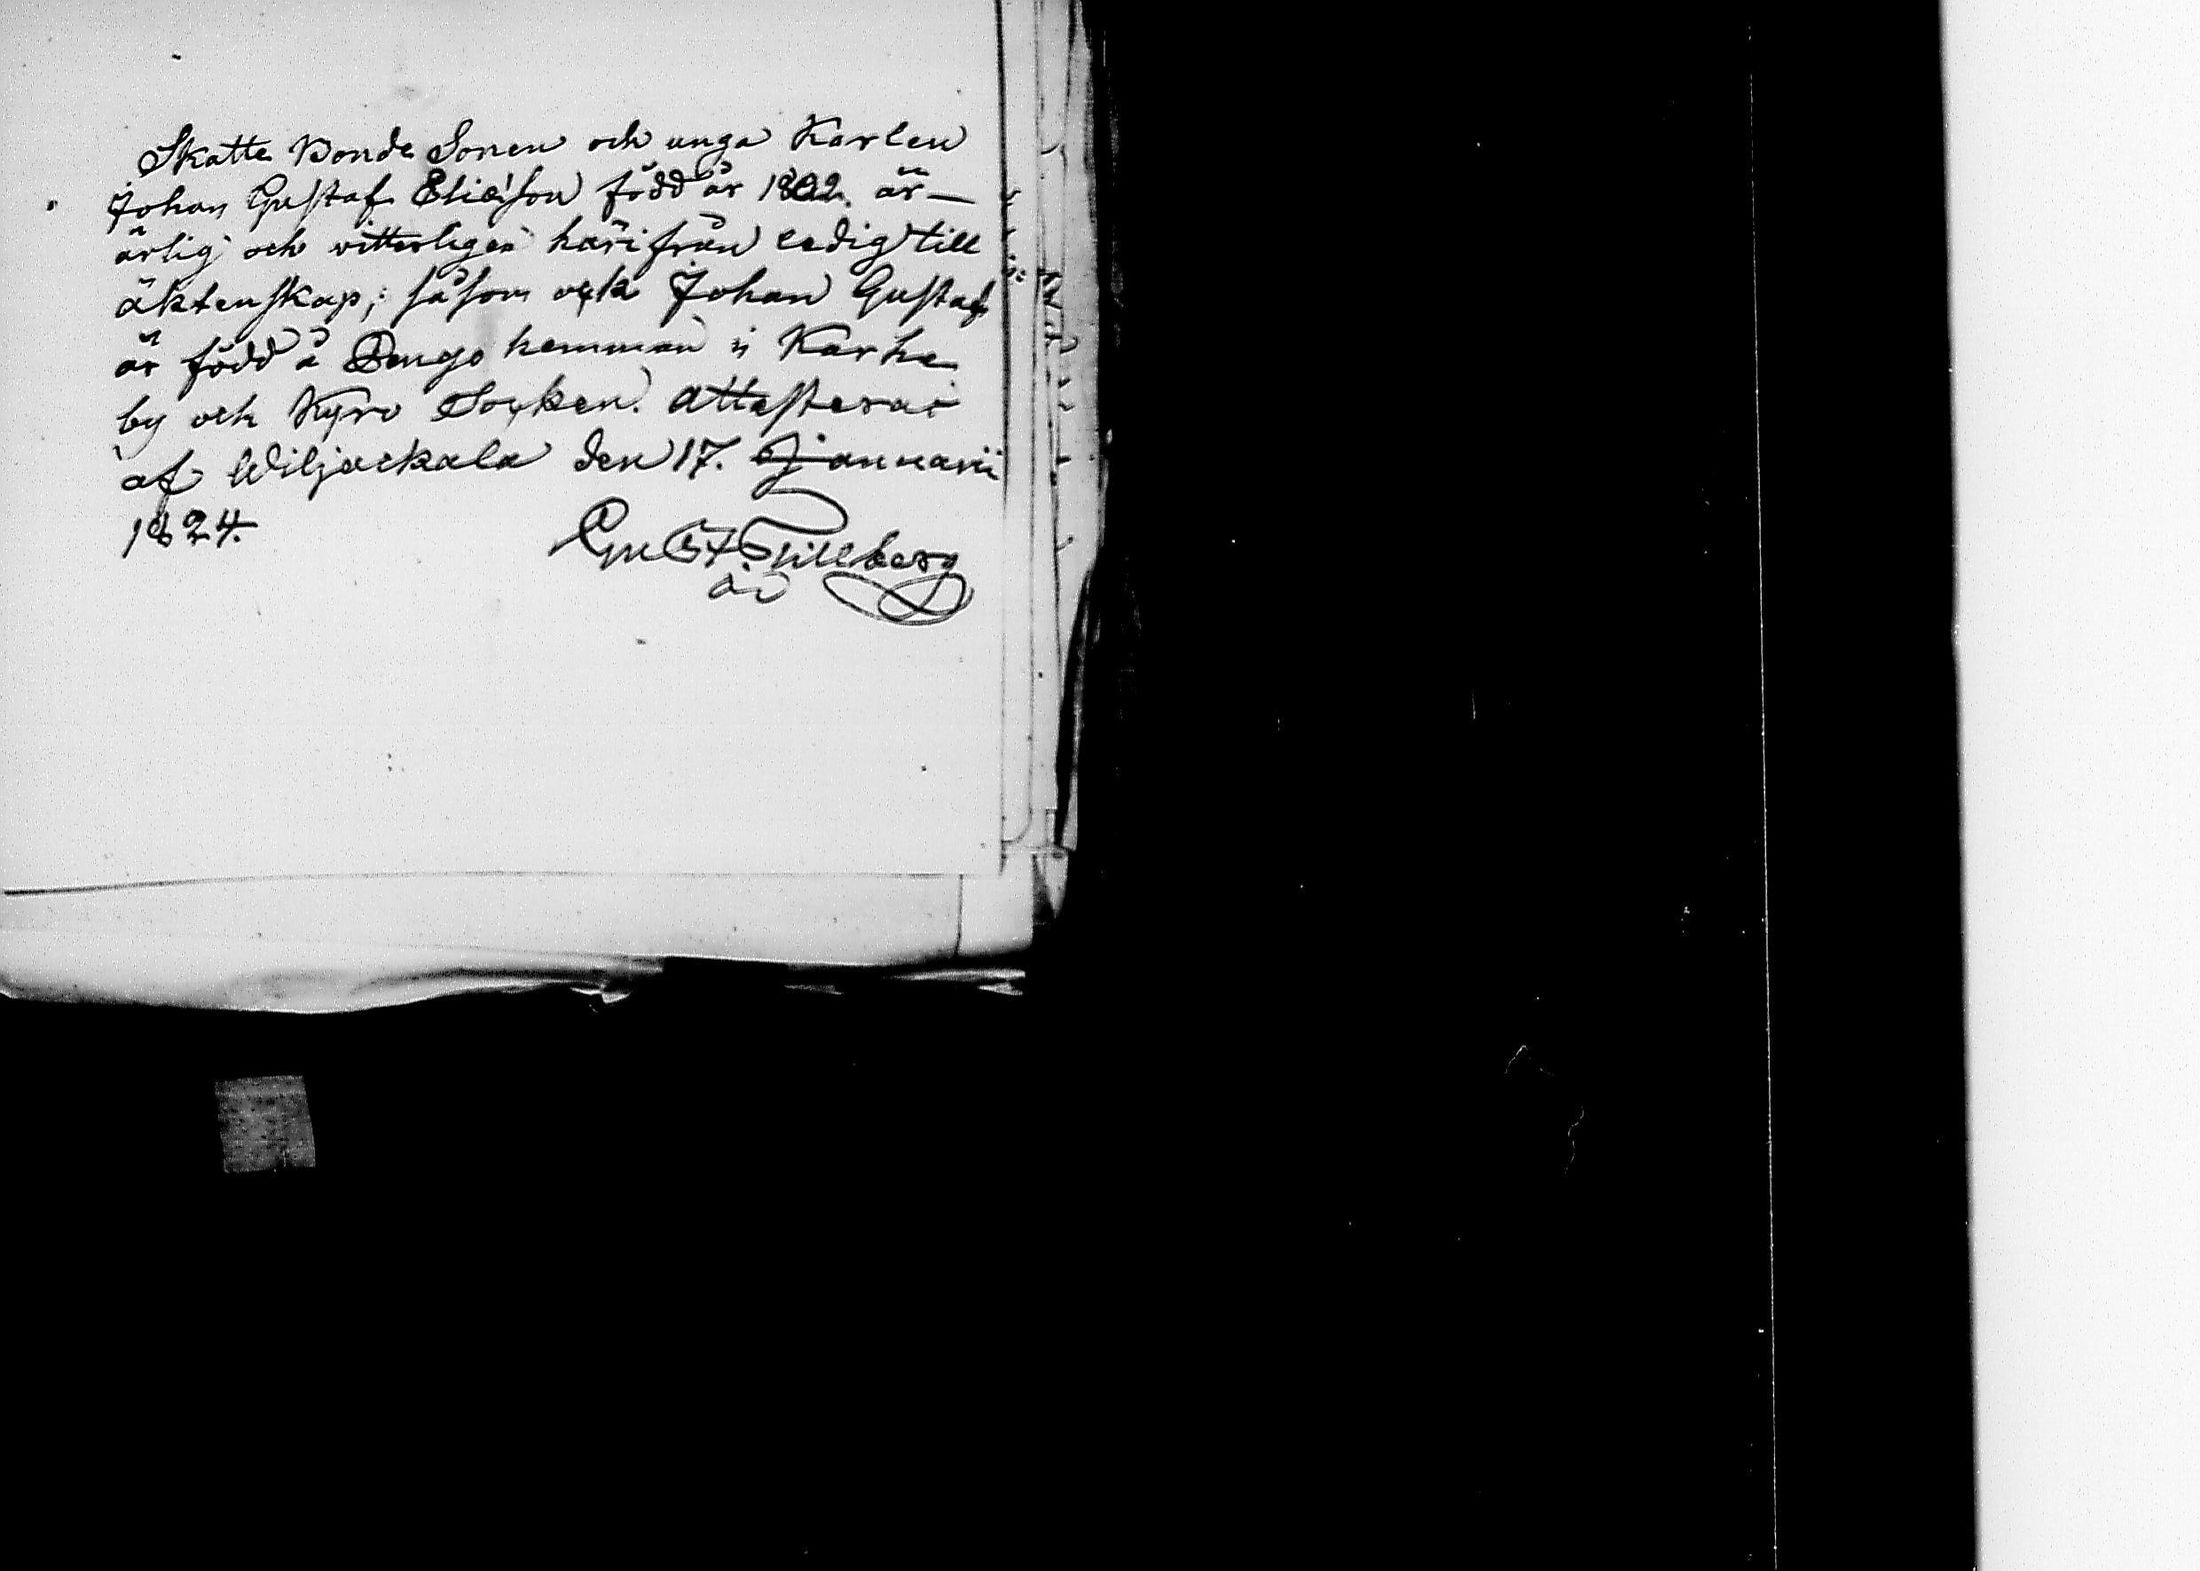 Skatte Bonde Sonen och unga Karlen
Johan Gustaf Eliæson född år 1802. är
ärlig och vitterligen härifrån ledig till
äktenskap; såsom ock Johan Gustaf
är född å Pengo hemman i Karhe
by och Kyro Socken. Attesterar
af Wiljackala den 17. Januarii
1824.
Gust Tillberg